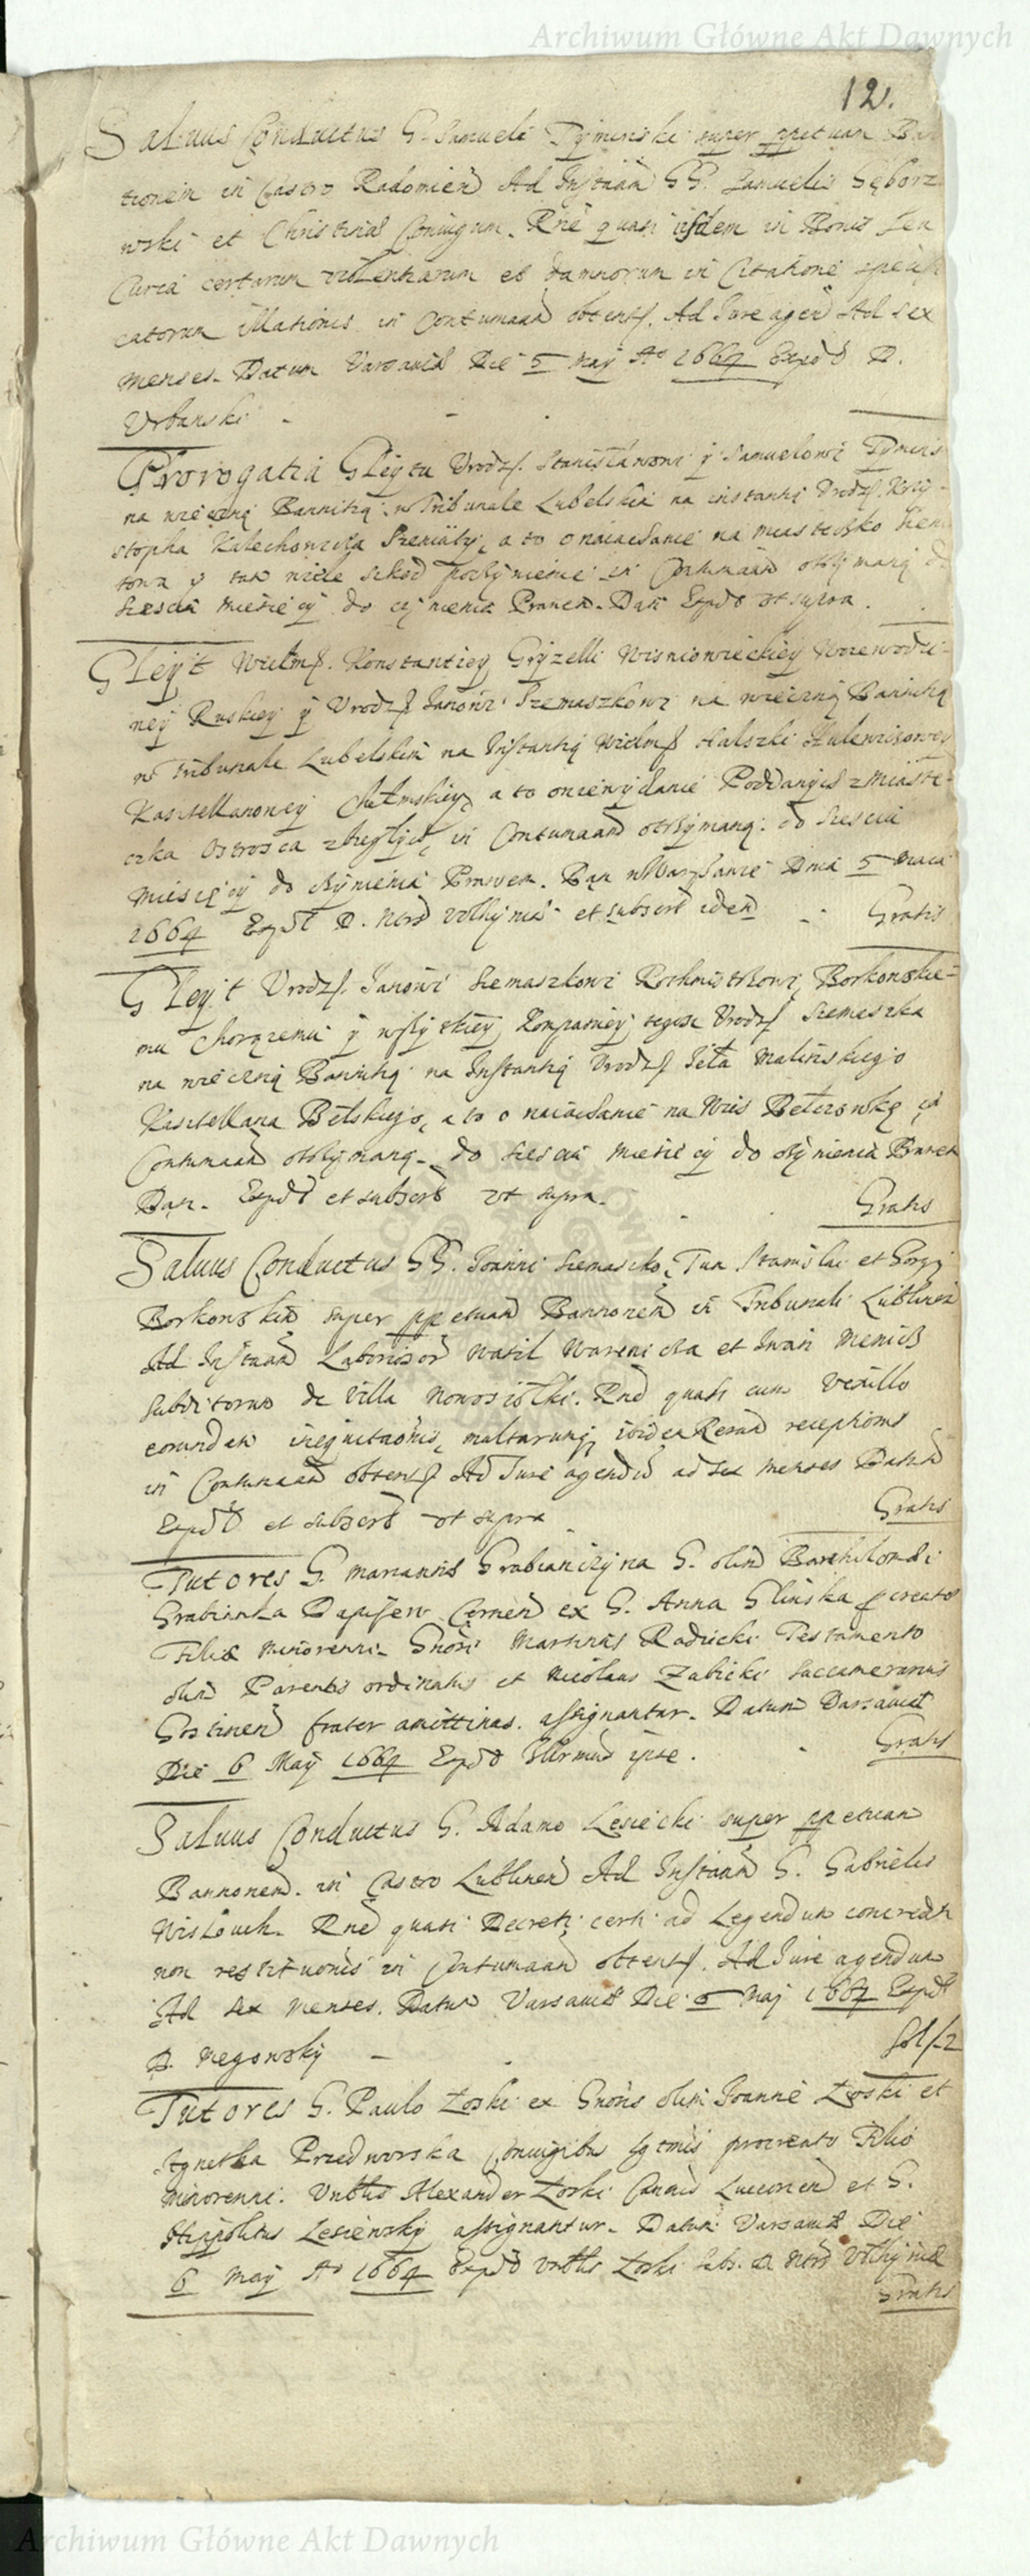 Archiwum Główne Akt Dawnych
12.
Saluus Conductus G. Samueli Tyminski super ppetuam Ban
tionem in Castro Radomien Ad Instaam GG. Samuelis
wski et Christinae Coniugum. Rne quasi iisdem in Bonis seu
Curia certarum violentiarum et damnorum in Citatione specifi
catorum illationis in Contumaam obtent. Ad Iure agen Ad sex
menses. Datum Varsaviae Die 5 May Ao 1664 Expd D.
Urbanski
Prorogatia Gleytu Urodz. Stanisławowi y Samuelowi Tymins
na wieczną Bannitią w Tribunale Lubelskim na instantią Urodz. Krzy-
stopha a to o naiachanie na miasteczko
y tam wiele szkod poczynienie in Contumaam otrzymaną do
szesciu miesięcy do czynienia Prawem. Dan Expd ut supra.
Gleyt Wielm. Konstantiey Gryzelli Wisniowieckiey Woiewodzi-
ney Ruskiey y Urodz Janowi Szemaszkowi na wieczną Bannitią
w Tribunale Lubelskim na Instantią Wielm Halszki
Kasztellanowey Chełmskiey, a to o niewydanie Poddanych z Miaste-
czka zbiegłych, in Contumaam otrzymaną. do szesciu
miesięcy do czynienia Prawem. Dan w Warszawie Dnia 5 Maia
1664 Expd D. Volhyniae et subscrb idem Gratis
Gleyt Urodz. Janowi Szemaszkowi Rothmistrzowi, Borkowskie-
mu Chorązemu y wszytkiey Kompaniey tegosz Urodz Szemaszka
na wieczną Bannitią na Instantią Urodz Malinskiego
Kasztellana Bełskiego, a to o naiachanie na Wies in
Contumaam otrzymaną. do szesciu miesięcy do czynienia Prawem
Dan. Expd et subscrb ut supra. Gratis
Saluus Conductus GG. Ioanni Szemaszko, Stanislai et
Borkowskim super ppetuam Bannonem in Tribunali Lublinen
Ad Instaam Laborios Wasil et Iwan
subditorum de Villa Nowosiołki. Rne quasi cum Vexillo
eorundem inequitaonis, multarumq ibidem Rerum receptionis
in Contumaam obtent Ad Iure agend ad sex menses Datum
Expd et subscrb ut supra Gratis
Tutores G. Mariannae Grabianczyna G. olim Bartholomaei
Grabianka Dapiferi ex G. Anna Glinska pcreatae
Filiae minorenni. Gnosi Martinus Radiecki Testamento
olim Parentis ordinatus et Nicolaus Zabicki Succamerarius
Gostinen frater amittinus. assignantur. Datum Varsaviae
Die 6 May 1664 Expd ipse. Gratis
Saluus Conductus G. Adamo Lesiecki super ppetuam
Bannonem. in Castro Lublinen Ad Instaam G. Gabrielis
Rne quasi Decreti certi ad Legendum concrediti
non restitutionis in Contumaam obtent. Ad Iure agendum
Ad sex menses. Datum Varsaviae Die 6 May 1664 Expd
D. Negowsky Sol f. 2
Tutores G. Paulo Łoski ex Gnosis olim Ioanne Łoski et
Agnetka Przedworska Coniugibus pcreato Filio
minorenni. Alexander Łoski Lucorien et G.
Hippolitus Lesienski assignantur. Datum Varsaviae Die
6 May Ao 1664 Expd Łoski subs. D. Volhyniae
Gratis
Archiwum Główne Akt Dawnych